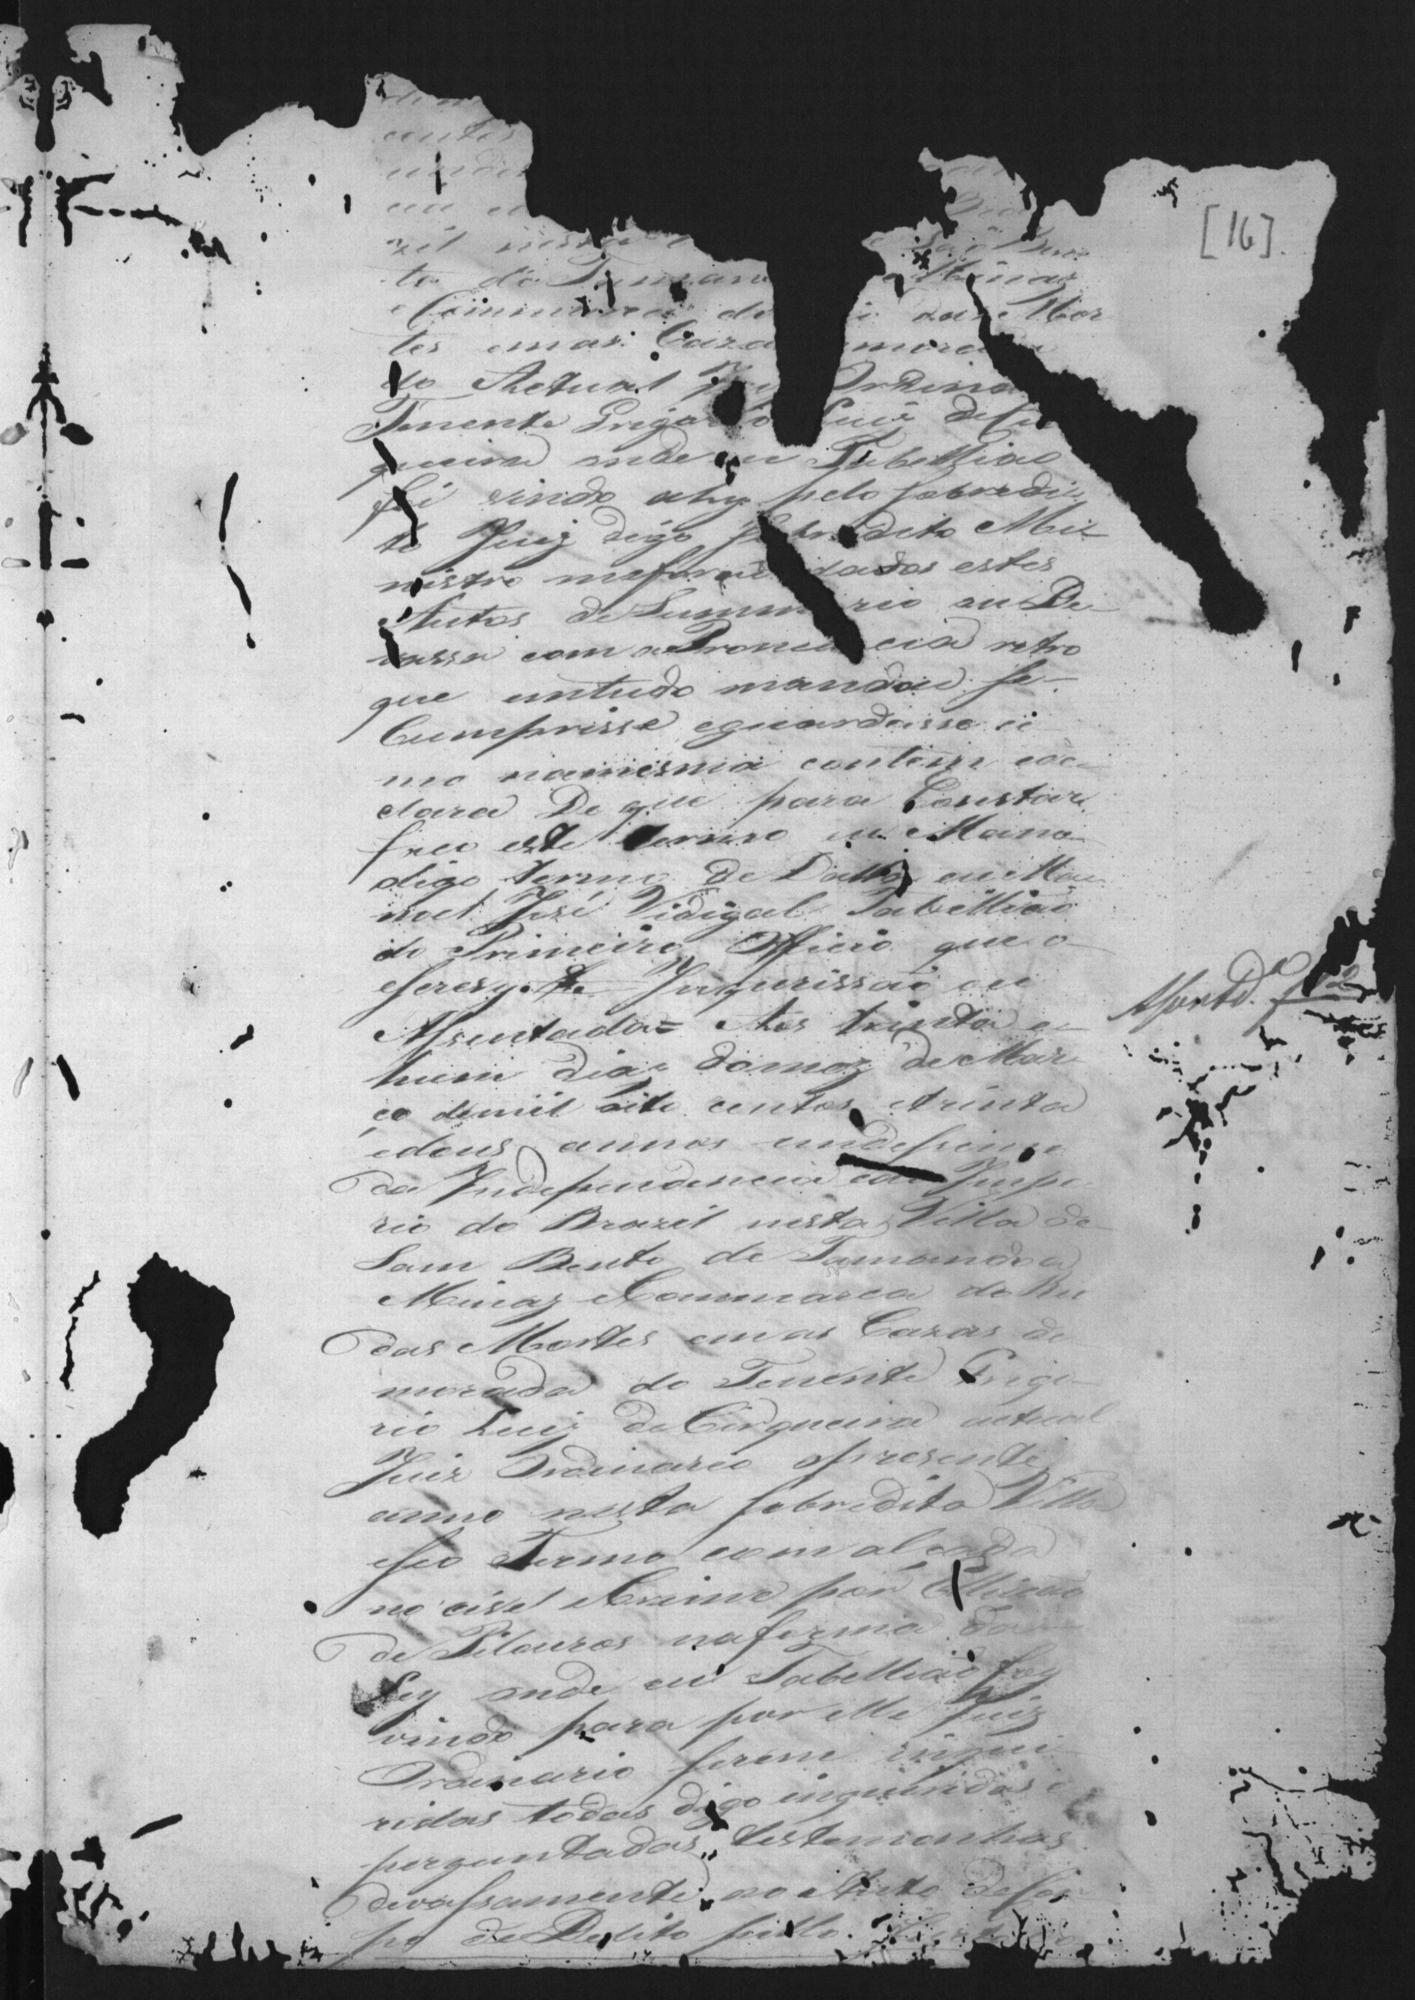 [16]
centos
zil nesta São Ben
to do Taman Minas
Commarca do das Mor
tes em as Cazas mora
do Actual Juiz Ordina
Tenente Grigorio Luiz de Cir
queira onde eu Tabelliao
fui vindo ahy pelo sobredi
to Juiz digo sobredito Mi
nistro me forao dados estes
Autos de Summario ou De
vassa com a Pronuncia retro
que em tudo mandou se
Cumprisse e guardasse co
mo na mesma contem e de
clara De que para Constar
fiz este termo eu Mano
digo termo de Datta eu Ma
noel José Vidigal Tabelliao
do Primeiro Officio que o
escrevy. Inquirissaó ou
Assentada = Aos trinta e
hum dias do mez de Mar
ço de mil oito centos e trinta
e dous annos
da Independencia e do Impe
rio do Brazil nesta Villa de
Sam Bento de Tamandoa
Minas e Commarca do Rio
das Mortes em as Cazas de
morada do Tenente Grigo
rio Luiz de Cirqueira actual
Juiz Ordinario o presente
anno nesta sobredita Villa
e seo Termo com alçada
no civel e Crime por Elleicao
de Pilouros na forma da
Ley onde eu Tabelliao foy
vindo para por elle Juiz
Ordinario serem inqui
ridas todas digo inquiridas e
perguntadas testemonhas
devassamente ao Auto de Cor
po de Delito